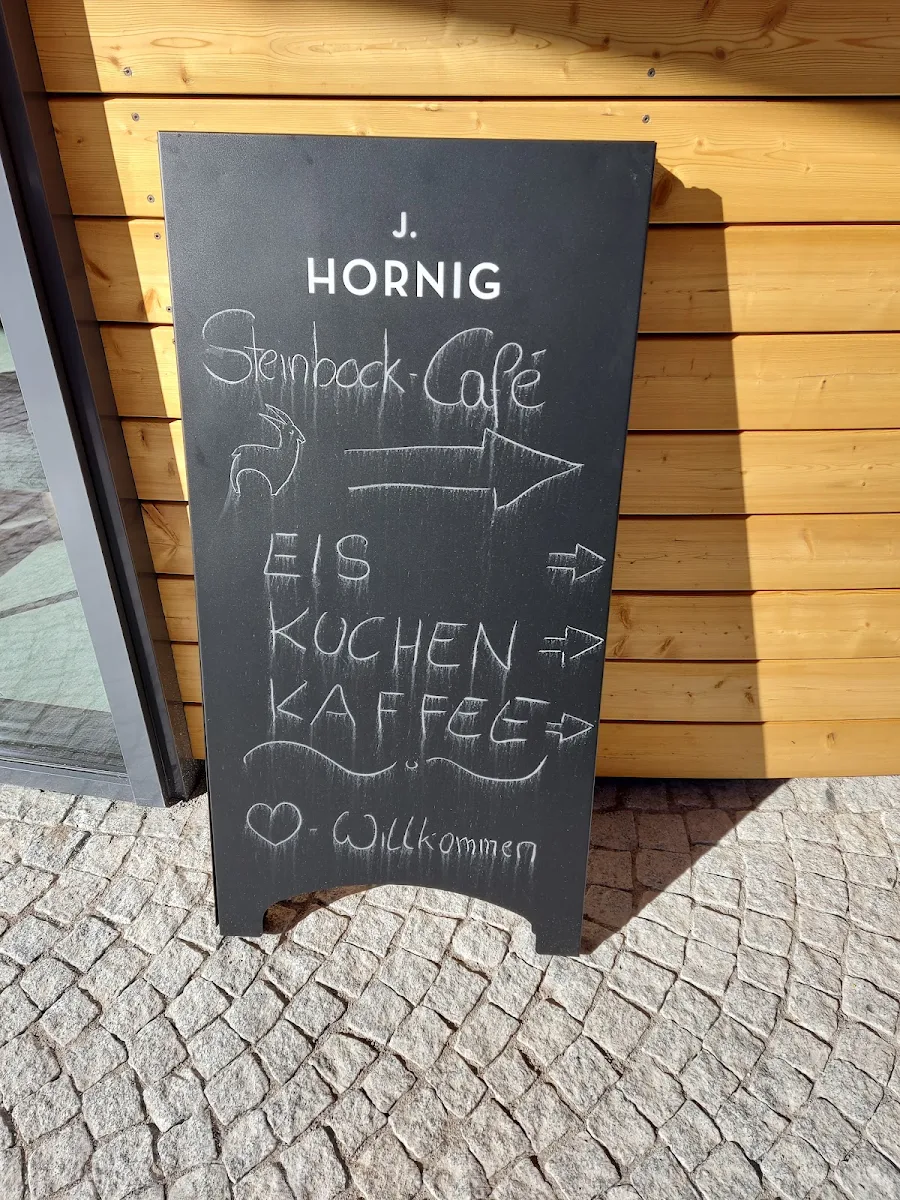 J.
HORNIG
Steinbock-Café
EIS
KUCHEN
KAFFEE
- Willkommen